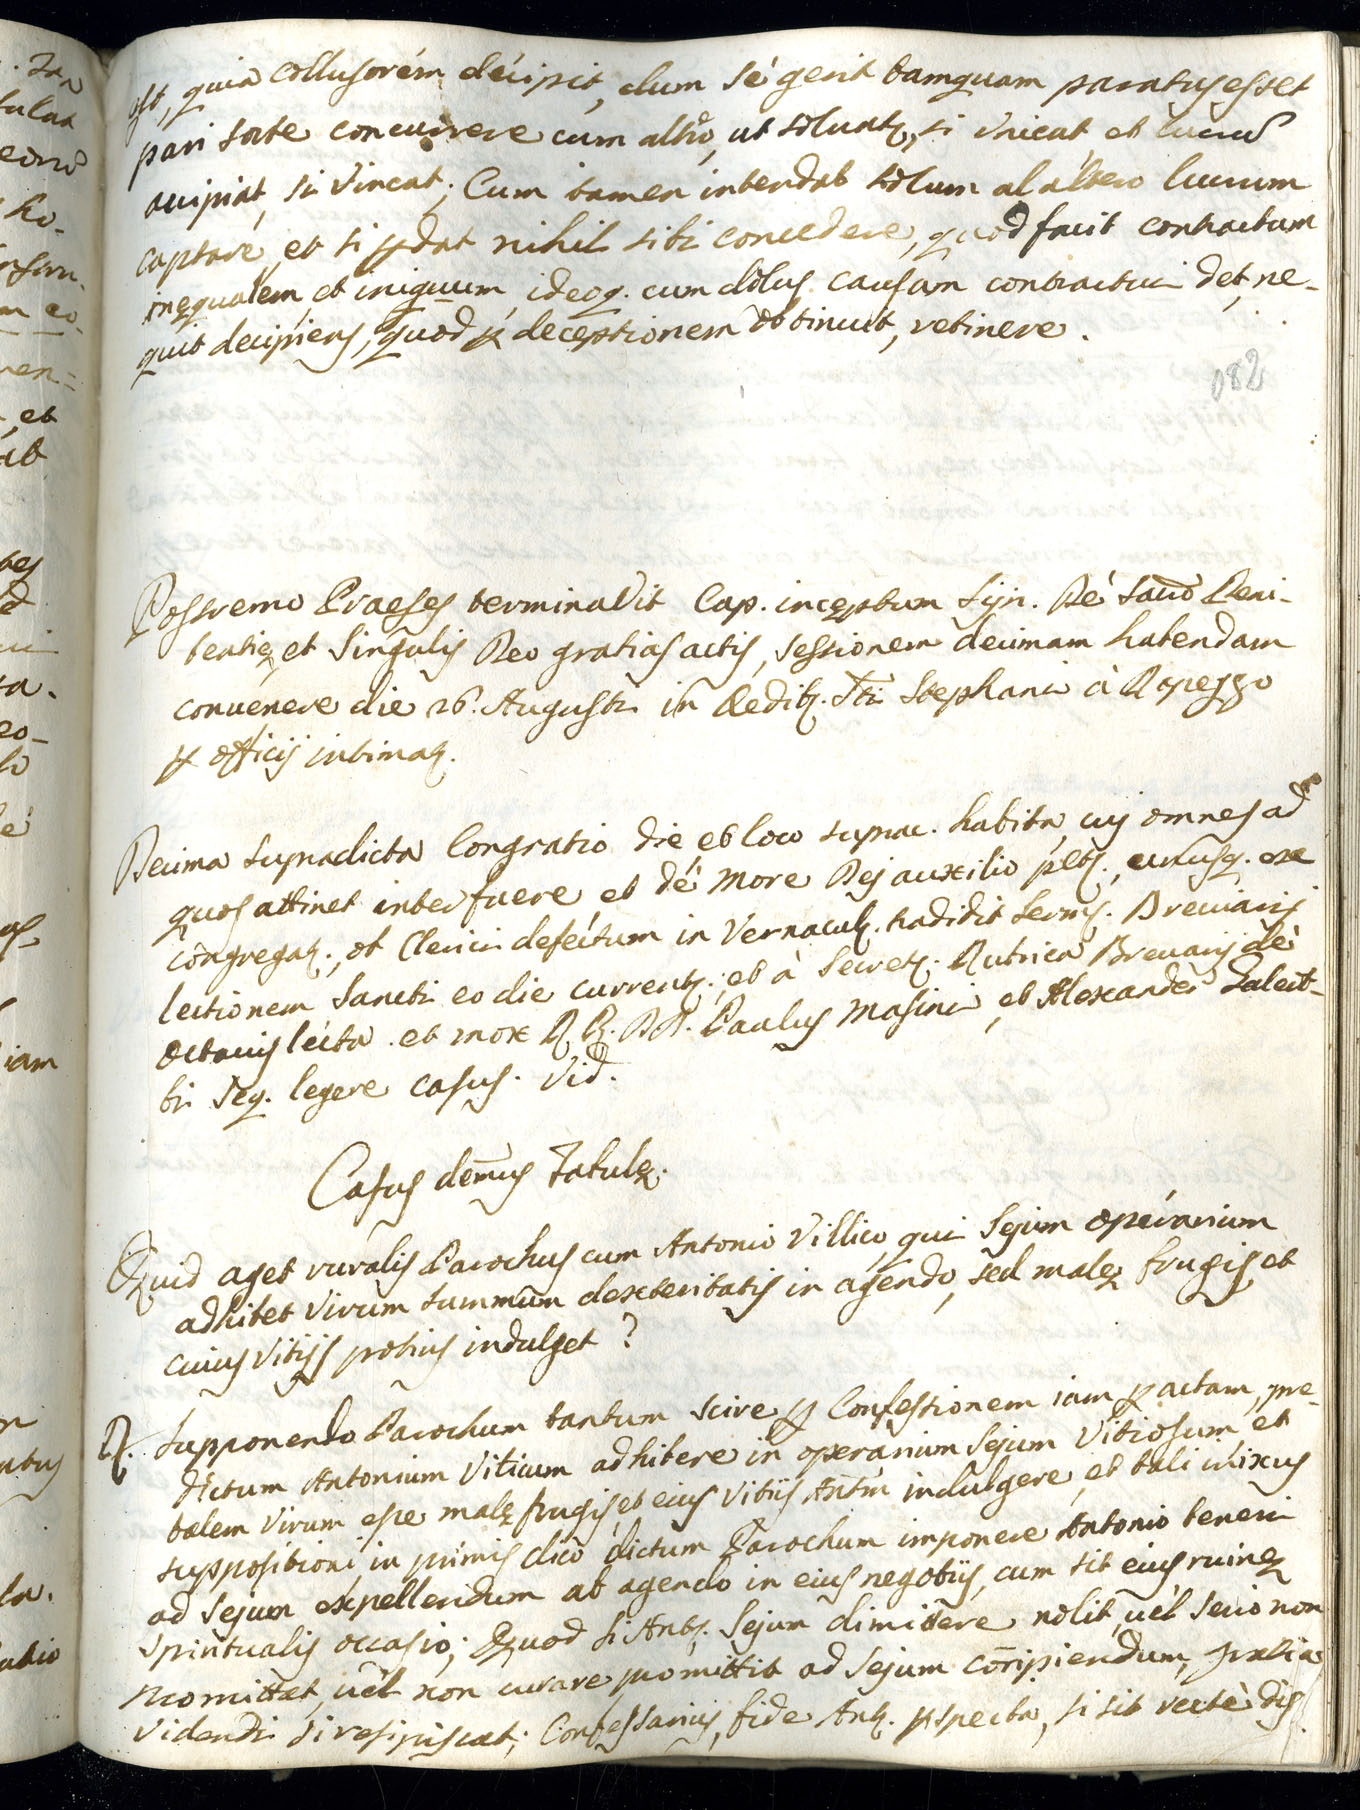 est, quia collusorem decipit, dum se gerit tamquam paratus esset
pari sorte concurrere cum altro, ut solvat, si vincat et lucrũ
accipiat, si vincat; Cum tamen intendat solum ab altero lucrum
captare, et si perdat nihil sibi concedere, quod facit contractum
inequalem, et iniquum ideoq. cum dolus causam contractui det, ne-
quit decipiens, quod per deceptionem obtinuit, retinere.
082
Postremo Praeses terminavit Cap. inceptum Syn. De Sacrõ Peni-
tentie, et singulis Deo gratias actis, sessionem decimam habendam
convenere die 26. Augusti in Aedib. Sti Stephani à Ropezzo
per officij intimat.
Decima supradicta Congratio die et loco suprac. habita, cuj omnes ad
quos attinet interfuere et dé more Dej auxilio petit., cunusq. ex
congregat., ob Clerici defectum in Vernacul. tradidit sermõ. Breviarij
lectionem Sancti eo die current.; et à Secret. Rubrica Breviarij dé
octavis lecta. et mox R R. DD. Paulus Masini, et Alexander Galeot-
ti seq. legere casus. Vid.
Casus decimus Tabule.
Quid aget ruralis Parochus cum Antonio Villico, qui Sejum operarium
adhibet virum summum dexteritatis in agendo, sed male frugis et
cuius vitijs prótius indulget?
R. Supponendo Parochum tantum scire per Confessionem iam peractam, pre-
dictum Antonium Vilicum adhibere in operarium Sejum vitiosum et
talem virum esse male frugis et eius vitiis Antm indulgere, et tali inixus
suppositioni in primis dico dictum Parochum imponere Antonio teneri
ad Sejum expellendum ab agendo in eius negotiis, cum sit eius ruine
spiritualis occasio; Quod si Ant. Sejum dimittere nolit, vel serio non
promittat, vel non curare promittit ad Sejum corripiendum, gratia
videndi si resipiscat; Confessarius, fide Ant. perspecta, si sit recte dis